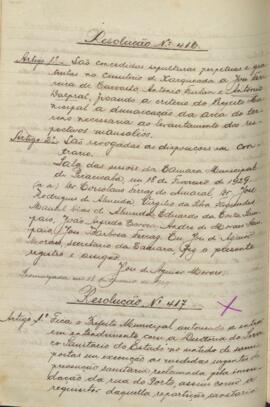 Resolução Nº 416.
Artigo 1º - São concedidas sepulturas perpetuas e gra-
tuitas no cemiterio de Xarqueada a José Fer-
reira de Carvalho, Antonio Furlan e Antonio
Dalpral, ficando a criterio do Prefeito Mu-
nicipal a demarcação da area do ter-
reno necessaria ao levantamento dos res-
pectivos mausoléos.
Artigo 2º São revogadas as disposições em con-
trario.
Sala das sessões da Camara Municipal
de Piracicaba, em 18 de Fevereiro de 1929.
(a.a.) Dr. Coriolano Ferraz do Amaral, Dr. José
Rodrigues de Almeida, Virgilio da Silva Fagundes,
Manuel Dias de Almeida, Eduardo da Costa Sam-
paio, José
paio, José Barbosa Ferraz. Eu, José de Aguiar
Moraes, secretario da Camara, fiz o presente
registro e assigno.
José de Aguiar Moraes.
Resolução Nº 417
Artigo 1º Fica o Prefeito Municipal autorisado a entrar
em entendimento com a Directoria do Servi-
ço Sanitario do Estado no sentido de serem
postas em execução as medidas urgentes de
prevenção sanitaria, reclamada pela inun-
dação da rua do Porto, assim como a
requisitar daquella repartição, sanitaria